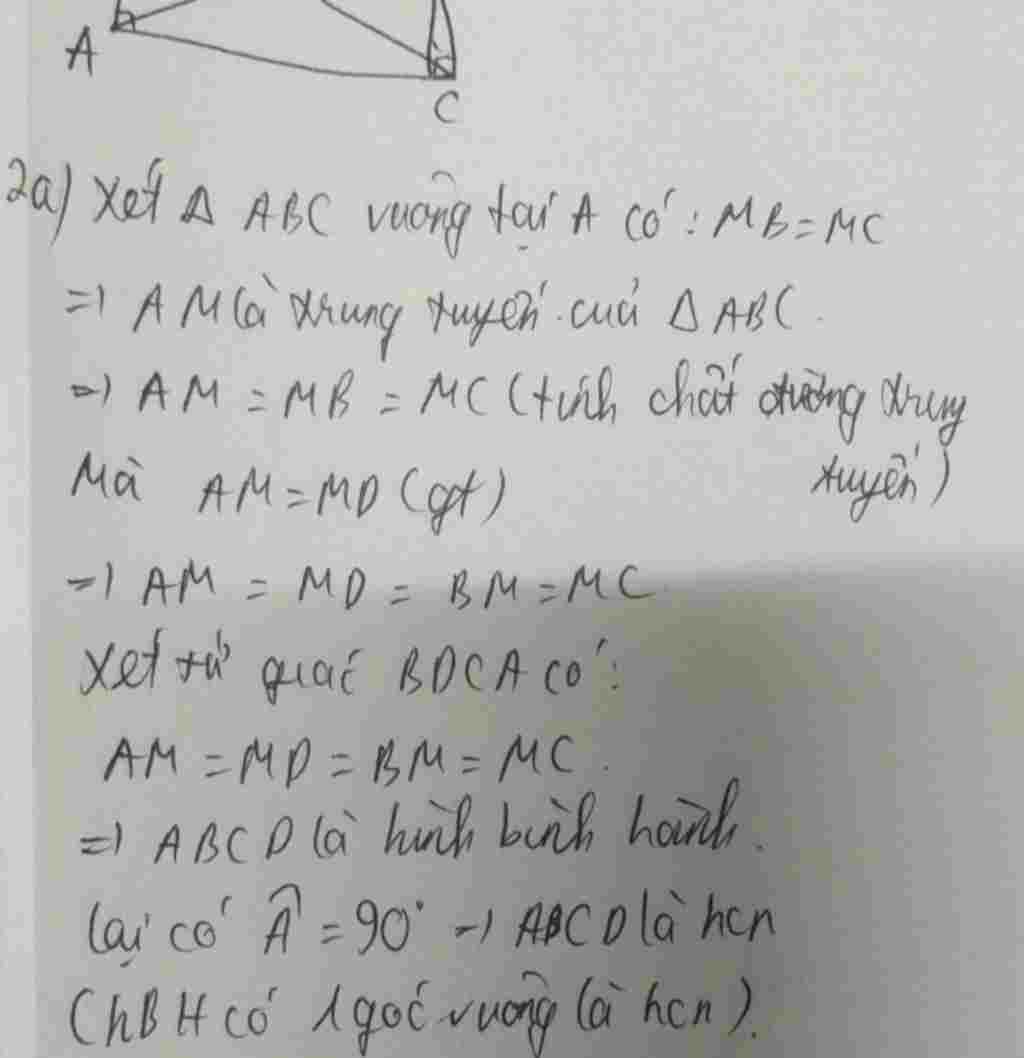 A
C
2a) Xét Δ ABC vuông tại A có: MB = MC
=> AM là trung tuyến của Δ ABC.
=> AM = MB = MC (tính chất đường trung
tuyến)
Mà AM = MD (gt)
=> AM = MD = BM = MC
Xét tứ giác BDCA có:
AM = MD = BM = MC.
=> ABCD là hình bình hành.
Lại có Â = 90° => ABCD là hcn
(hBH có 1 góc vuông là hcn).